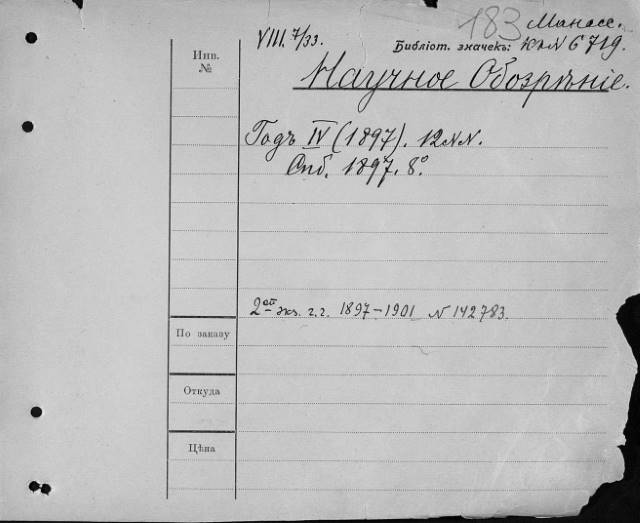 183 Манасе.
VIII. 7/33.
Библіот. значекъ: К № 6719.
Инв.
№
Научное Обозрѣніе.
Годъ IV (1897). 12 №№.
Спб. 1897. 8°.
2ой экз. г.г. 1897-1901 № 142783.
По заказу
Откуда
Цѣна